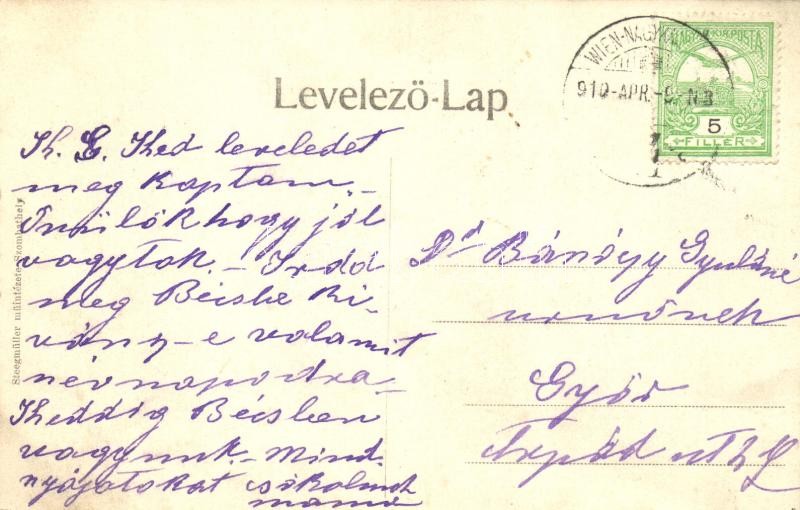 Levelező-Lap
WIEN-NAGYK
910-APR.-
MAGYAR KIR. POSTA
5
FILLÉR
Kh. G. Ked leveledet
meg kaptam –
Örülök hogy jól
vagytok. – Irdd
meg Bécsbe ki-
vánsz-e valamit
névnapodra –
Keddig Bécsben
vagyunk. – Mind-
nyájatokat csókolunk
mama
Dr Bánóczy Gyuláné
urnőnek
Győr
Árpád ut
Steegmüller műintézete Szombathely